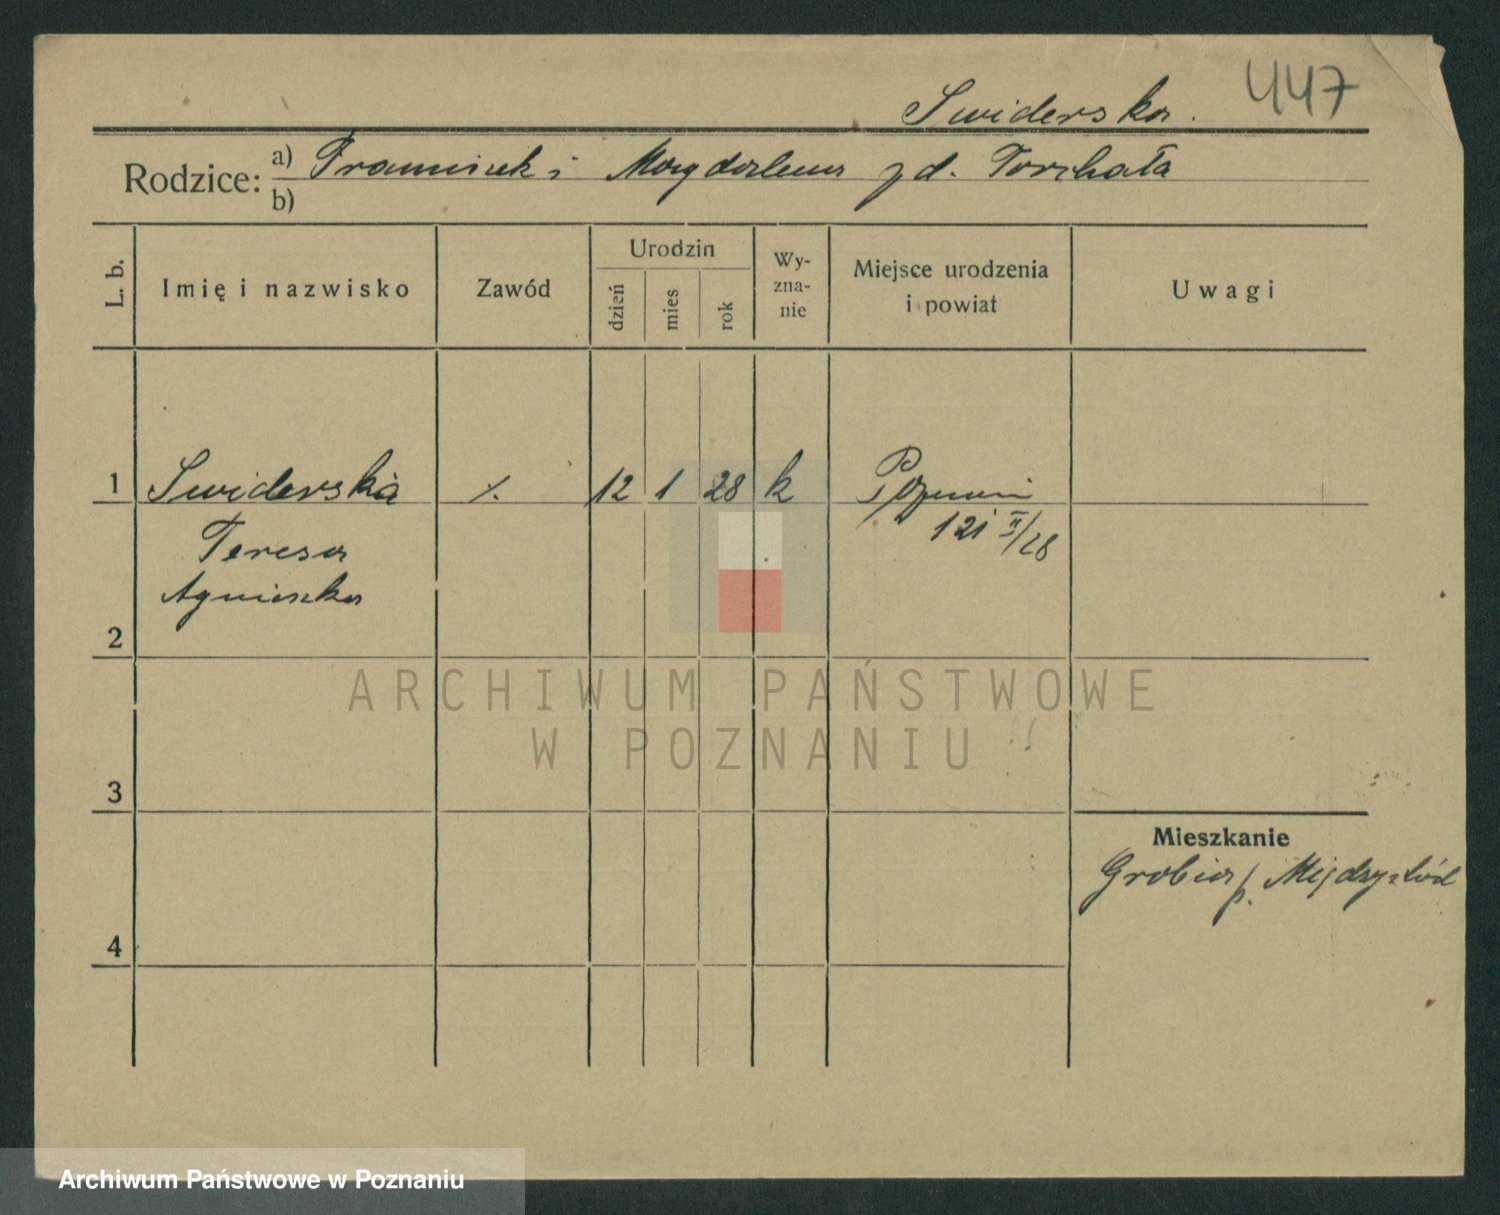 447
Swiderska.
Rodzice: a) Franciszek i Magdalena z d. Torchała
b)
L. b. Imię i nazwisko Zawód Urodzin dzień mies rok Wy-zna-nie Miejsce urodzenia i powiat Uwagi
1 Swiderska ./. 12 1 28 k Poznań
121 II/28
Teresa
Agnieszka
2
ARCHIWUM PAŃSTWOWE
W POZNANIU
3
Mieszkanie
Grobia p. Międzychód
4
Archiwum Państwowe w Poznaniu